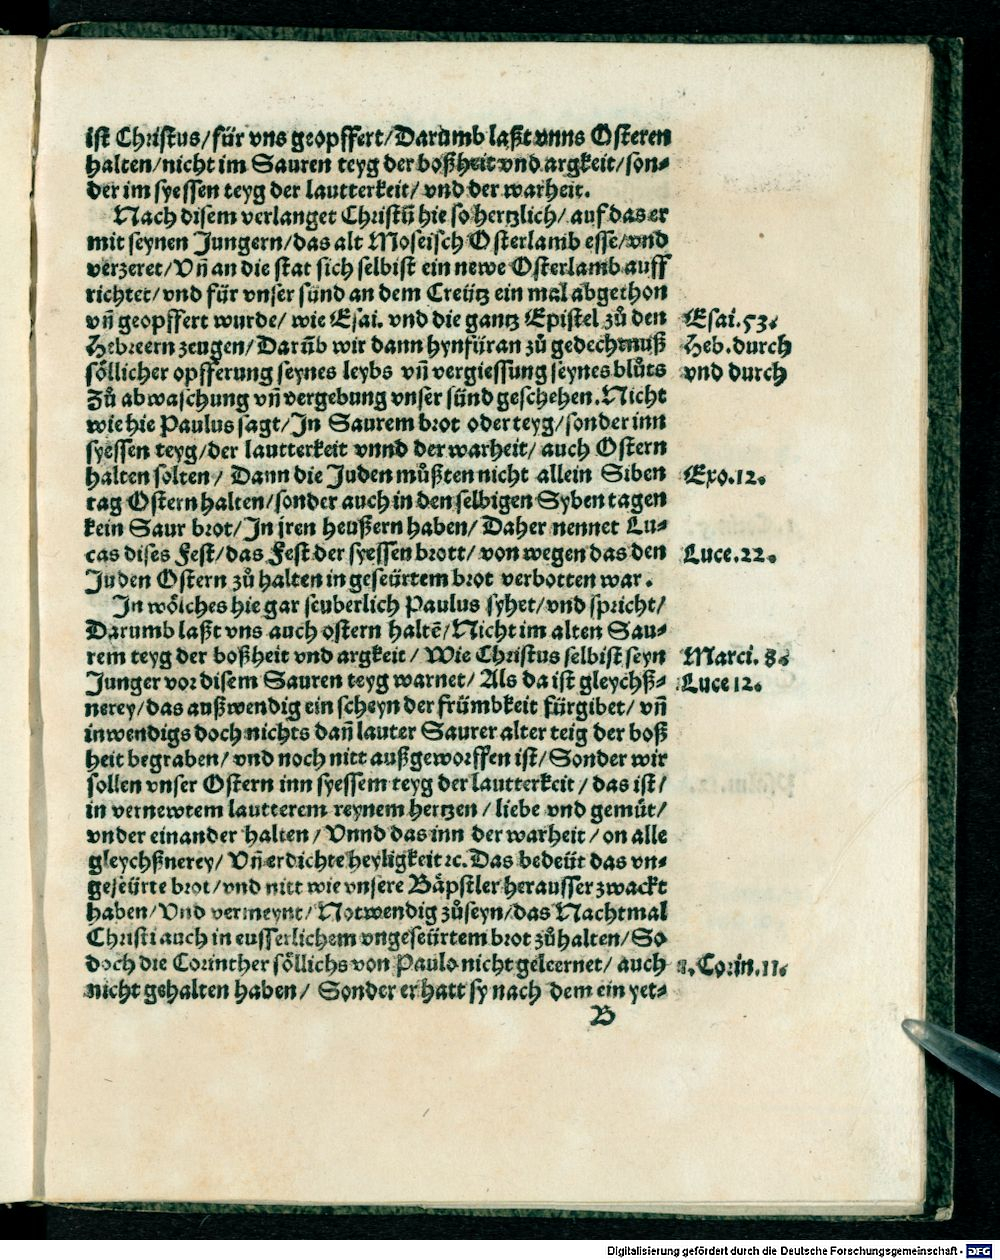 ist Christus/für vns geopffert/Darumb laßt vnns Osteren
halten/nicht im Sauren teyg der boßheit vnd argkeit/son⸗
der im syessen teyg der lautterkeit/vnd der warheit.
Nach disem verlanget Christū hie so hertzlich/auf das er
mit seynen Jungern/das alt Moseisch Osterlamb esse/vnd
verzeret/Vñ an die stat sich selbist ein newe Osterlamb auff
richtet/vnd für vnser sünd an dem Creütz ein mal abgethon
vñ geopffert wurde/ wie Esai. vnd die gantz Epistel zů den
Esai.53.
Hebreern zeugen/Darūb wir dann hynfüran zů gedechtnuß
Heb.durch
söllicher opfferung seynes leybs vñ vergiessung seynes blůts
vnd durch
Zů abwaschung vñ vergebung vnser sünd geschehen. Nicht
wie hie Paulus sagt/In Saurem brot oder teyg/sonder inn
syessen teyg/der lautterkeit vnnd der warheit/auch Ostern
halten solten/ Dann die Juden můßten nicht allein Siben
Exo.12.
tag Ostern halten/sonder auch in den selbigen Syben tagen
kein Saur brot/In jren heußern haben/Daher nennet Lu⸗
cas dises Fest/das Fest der syessen brott/von wegen das den
Luce.22.
Juden Ostern zů halten in geseürtem brot verbotten war.
In wölches hie gar seuberlich Paulus syhet/vnd spricht/
Darumb laßt vns auch ostern haltē/Nicht im alten Sau⸗
rem teyg der boßheit vnd argkeit/Wie Christus selbist seyn
Marci. 8.
Junger vor disem Sauren teyg warnet/Als da ist gleychß⸗
Luce 12.
nerey/das außwendig ein scheyn der frümbkeit fürgibet/vñ
inwendigs doch nichts dañ lauter Saurer alter teig der boß
heit begraben/vnd noch nitt außgeworffen ist/Sonder wir
sollen vnser Ostern inn syessem teyg der lautterkeit/das ist/
in vernewtem lautterem reynem hertzen/liebe vnd gemüt/
vnder einander halten/Vnnd das inn der warheit/on alle
gleychßnerey/Vñ erdichte heyligkeit ꝛc. Das bedeüt das vn⸗
geseürte brot/vnd nitt wie vnsere Bäpstler herausser zwackt
haben/Vnd vermeynt/Notwendig zů seyn/das Nachtmal
Christi auch in eusserlichem vngeseürtem brot zů halten/So
doch die Corinther söllichs von Paulo nicht gelernet/auch
1.Corin.11.
nicht gehalten haben/ Sonder er hatt sy nach dem ein yet⸗
B
Digitalisierung gefördert durch die Deutsche Forschungsgemeinschaft - DFG